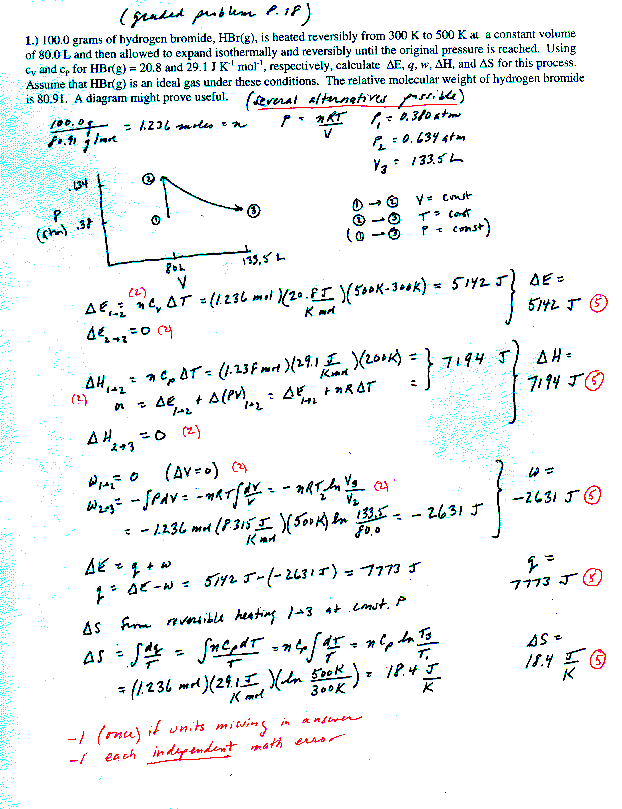 (graded problem P. 18)
1.) 100.0 grams of hydrogen bromide, HBr(g), is heated reversibly from 300 K to 500 K at a constant volume
of 80.0 L and then allowed to expand isothermally and reversibly until the original pressure is reached. Using
cv and cp for HBr(g) = 20.8 and 29.1 J K⁻¹ mol⁻¹, respectively, calculate ΔE, q, w, ΔH, and ΔS for this process.
Assume that HBr(g) is an ideal gas under these conditions. The relative molecular weight of hydrogen bromide
is 80.91. A diagram might prove useful. (several alternatives possible)
100.0g / 80.91 g/mol = 1.236 moles = n P = nRT/V P₁ = 0.380 atm
P₂ = 0.634 atm
V₃ = 133.5 L
.634 ②
P (atm) .38 ① ③
80L 133.5 L
V
① → ② V = const
② → ③ T = const
(① → ③ P = const)
ΔE₁→₂ = (2) n Cv ΔT = (1.236 mol)(20.8 J/K mol)(500K-300K) = 5142 J } ΔE = 5142 J ⑤
ΔE₂→₃ = 0 (2)
ΔH₁→₂ = n Cp ΔT = (1.238 mol)(29.1 J/K mol)(200K) = } 7194 J } ΔH = 7194 J ⑤
(2) or = ΔE₁→₂ + Δ(PV)₁→₂ = ΔE₁→₂ + nRΔT =
ΔH₂→3 = 0 (2)
W₁→₂ = 0 (ΔV=0) (2)
W₂→₃ = -∫PdV = -nRT∫dV/V = -nRT₂ ln V₃/V₂ (2) } w = -2631 J ⑤
= -1.236 mol (8.315 J/K mol)(500K) ln 133.5/80.0 = -2631 J
ΔE = q + w
q = ΔE-w = 5142 J-(-2631J) = 7773 J q = 7773 J ⑤
ΔS from reversible heating 1→3 at const. P
ΔS = ∫dq/T = ∫nCpdT/T = nCp∫dT/T = nCp ln T₃/T₁ ΔS =
= (1.236 mol)(29.1 J/K mol)(ln 500K/300K) = 18.4 J/K 18.4 J/K ⑤
-1 (once) if units missing in answer
-1 each independent math error